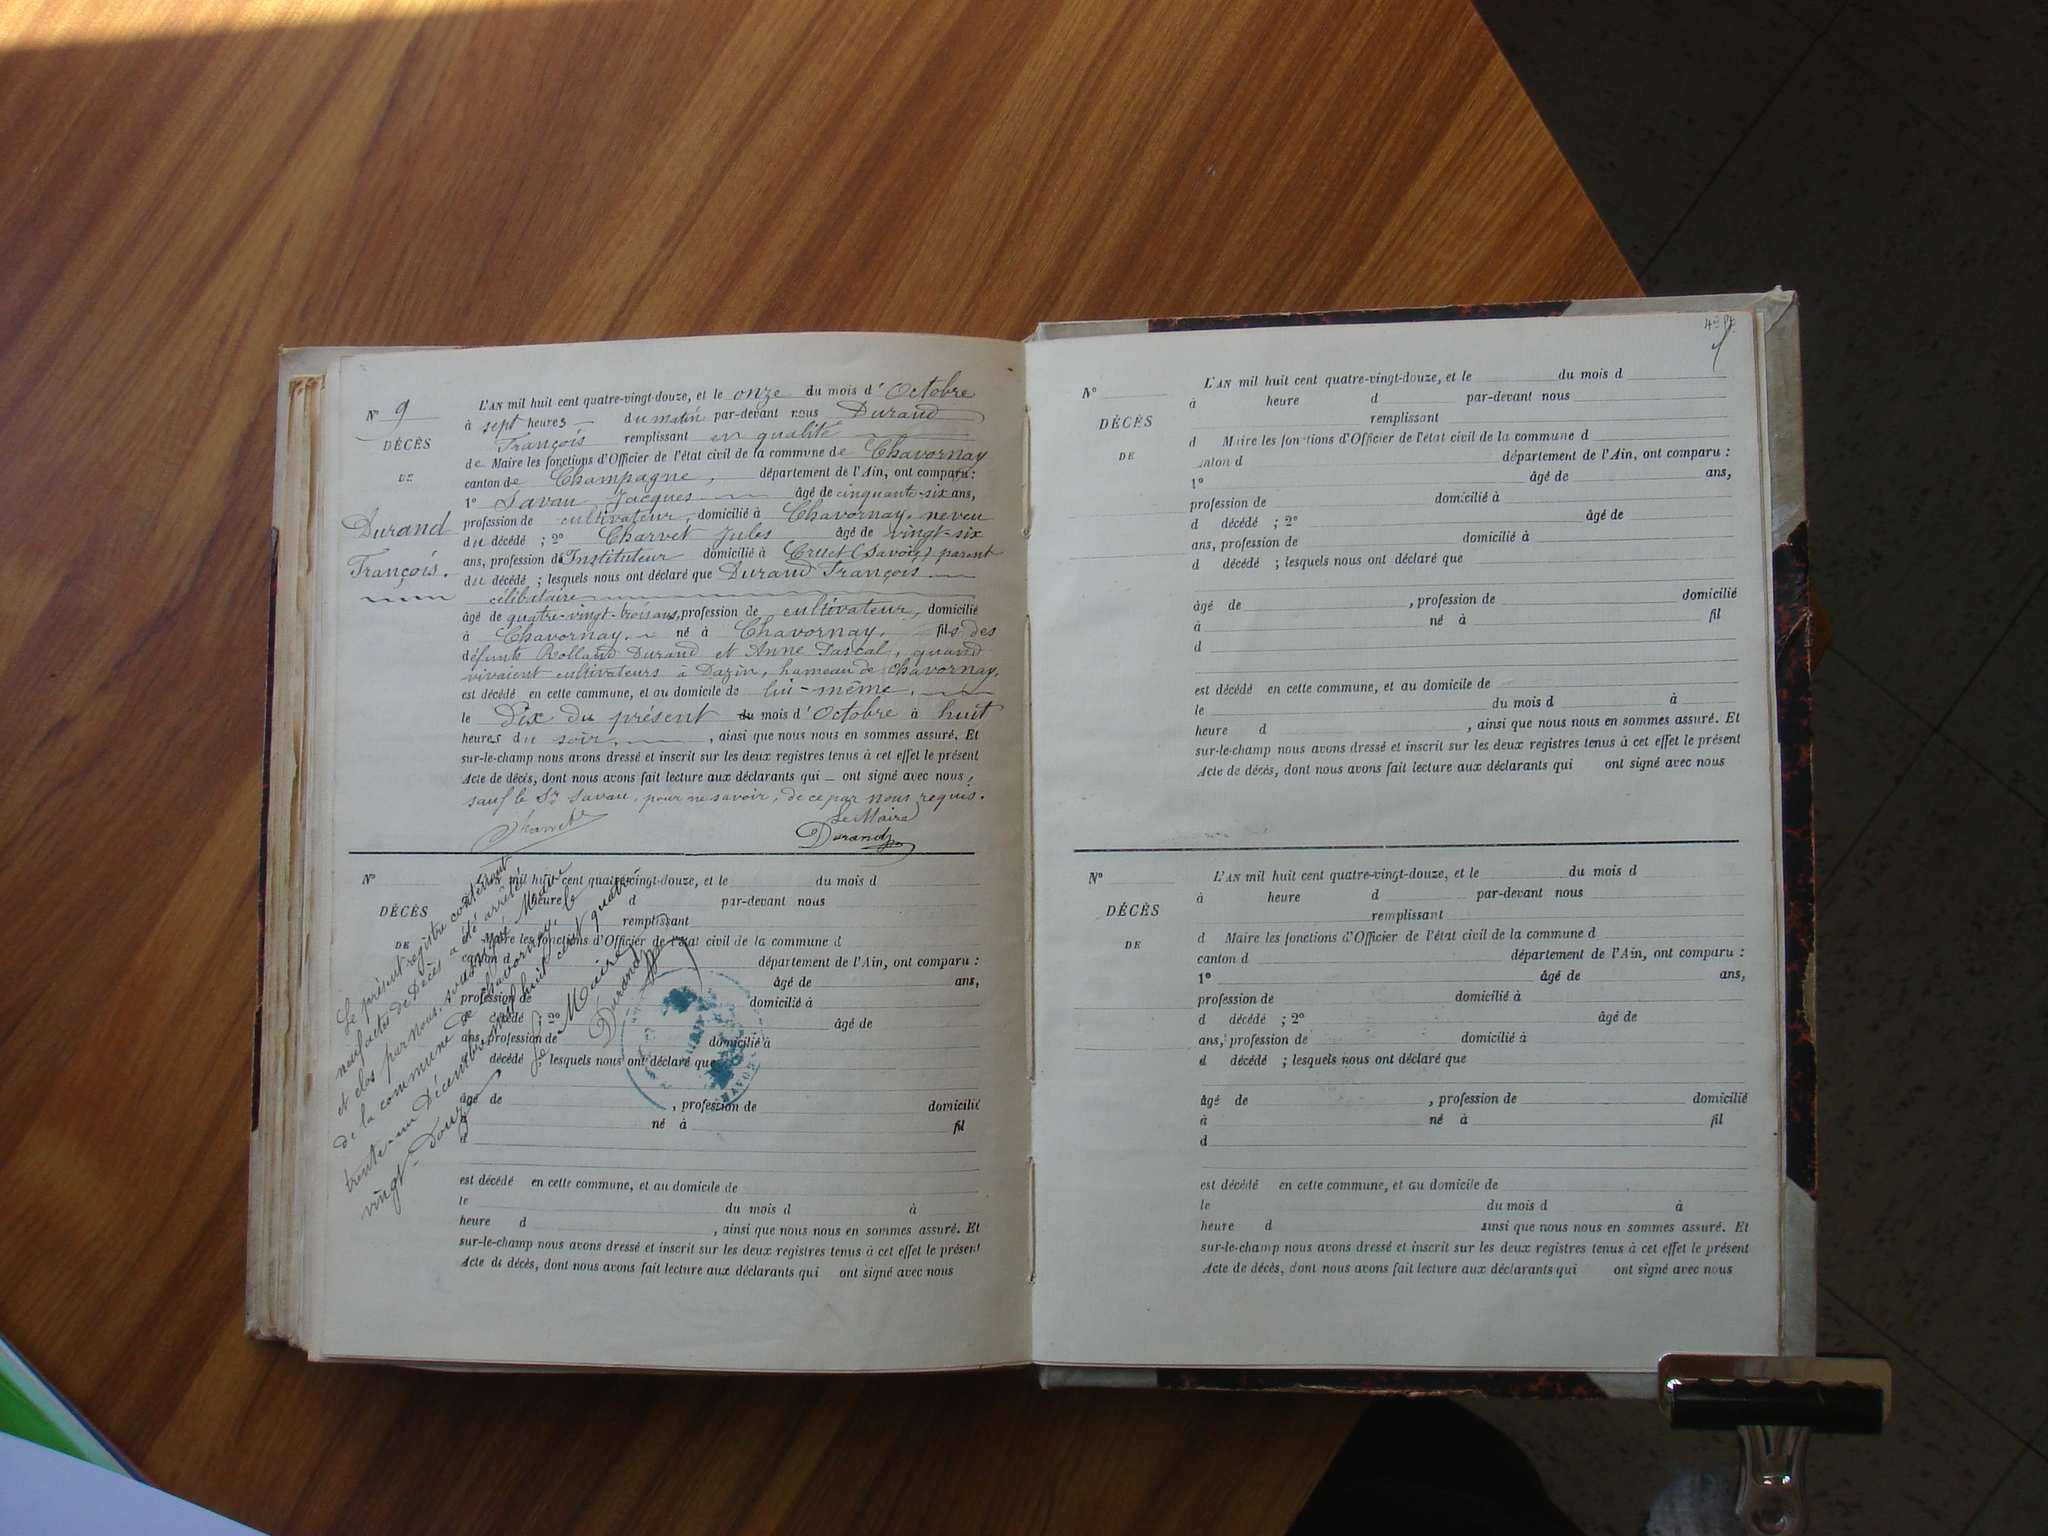 N° 9
DÉCÈS
DE
Durand
François.
L'AN mil huit cent quatre-vingt-douze, et le onze du mois d'Octobre
à sept heures du matin par-devant nous Durand
François remplissant en qualité
de Maire les fonctions d'Officier de l'état civil de la commune de Chavornay
canton de Champagne, département de l'Ain, ont comparu :
1° Savau Jacques âgé de cinquante-six ans,
profession de cultivateur, domicilié à Chavornay, neveu
du décédé ; 2° Charvet Jules âgé de vingt-six
ans, profession d'Instituteur domicilié à Cruet (Savoie) parent
du décédé ; lesquels nous ont déclaré que Durand François.
célibataire
âgé de quatre-vingt-trois ans, profession de cultivateur, domicilié
à Chavornay. né à Chavornay, fils des
défunts Rolland Durand et Anne Pascal, quand
vivaient cultivateurs à Dazin, hameau de Chavornay,
est décédé en cette commune, et au domicile de lui-même,
le Dix du présent du mois d'Octobre à huit
heures du soir, , ainsi que nous nous en sommes assuré. Et
sur-le-champ nous avons dressé et inscrit sur les deux registres tenus à cet effet le présent
Acte de décès, dont nous avons fait lecture aux déclarants qui ont signé avec nous,
sauf le Sr Savau, pour ne savoir, de ce par nous requis.
Charvet
Le Maire
Durand
N°
DÉCÈS
DE
mil huit cent quatre-vingt-douze, et le du mois d
heure d par-devant nous
remplissant
Maire les fonctions d'Officier de l'état civil de la commune d
canton d département de l'Ain, ont comparu :
âgé de ans,
profession de domicilié à
décédé ; 2° âgé de
ans, profession de domicilié à
décédé ; lesquels nous ont déclaré que
âgé de , profession de domicilié
à né à fil
d
est décédé en cette commune, et au domicile de
le du mois d à
heure d , ainsi que nous nous en sommes assuré. Et
sur-le-champ nous avons dressé et inscrit sur les deux registres tenus à cet effet le présent
Acte de décès, dont nous avons fait lecture aux déclarants qui ont signé avec nous
Le présent registre contenant
neuf actes de Décès a été arrêté
et clos par nous, soussigné Maire
de la commune de Chavornay, le
trente-un Décembre mil huit cent quatre
vingt-Douze
Le Maire
Durand
N°
DÉCÈS
DE
L'AN mil huit cent quatre-vingt-douze, et le du mois d
à heure d par-devant nous
remplissant
d Maire les fonctions d'Officier de l'état civil de la commune d
canton d département de l'Ain, ont comparu :
1° âgé de ans,
profession de domicilié à
d décédé ; 2° âgé de
ans, profession de domicilié à
d décédé ; lesquels nous ont déclaré que
âgé de , profession de domicilié
à né à fil
d
est décédé en cette commune, et au domicile de
le du mois d à
heure d , ainsi que nous nous en sommes assuré. Et
sur-le-champ nous avons dressé et inscrit sur les deux registres tenus à cet effet le présent
Acte de décès, dont nous avons fait lecture aux déclarants qui ont signé avec nous
N°
DÉCÈS
DE
L'AN mil huit cent quatre-vingt-douze, et le du mois d
à heure d par-devant nous
remplissant
d Maire les fonctions d'Officier de l'état civil de la commune d
canton d département de l'Ain, ont comparu :
1° âgé de ans,
profession de domicilié à
d décédé ; 2° âgé de
ans, profession de domicilié à
d décédé ; lesquels nous ont déclaré que
âgé de , profession de domicilié
à né à fil
d
est décédé en cette commune, et au domicile de
le du mois d à
heure d ainsi que nous nous en sommes assuré. Et
sur-le-champ nous avons dressé et inscrit sur les deux registres tenus à cet effet le présent
Acte de décès, dont nous avons fait lecture aux déclarants qui ont signé avec nous